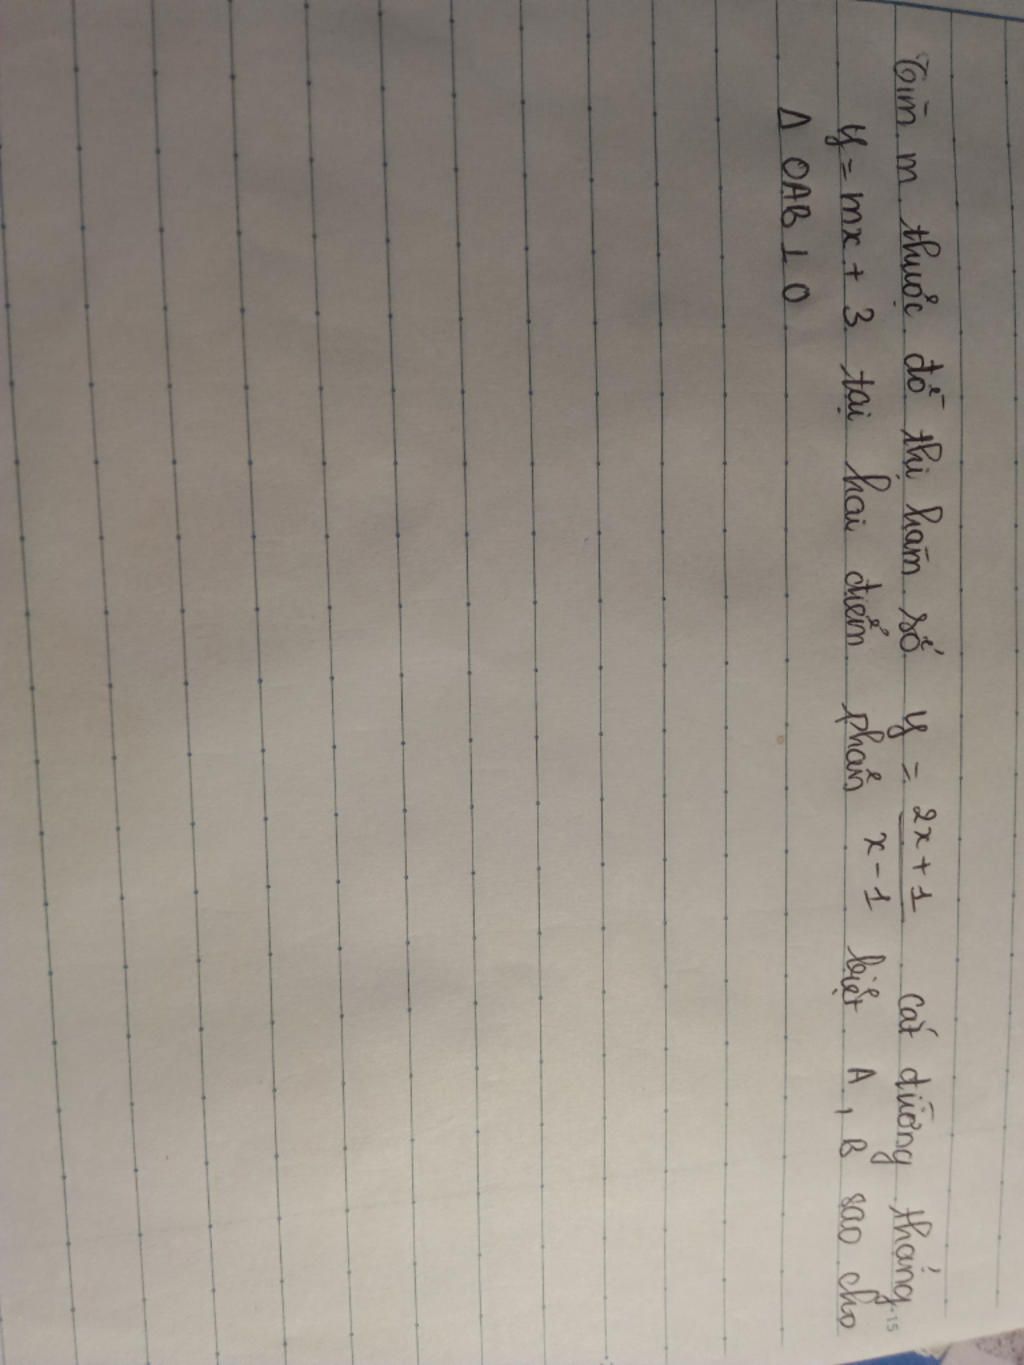 Tìm m thuộc đồ thị hàm số y = 2x+1 / x-1 cắt đường thẳng
y = mx + 3 tại hai điểm phân biệt A, B sao cho
Δ OAB ⊥ O
15